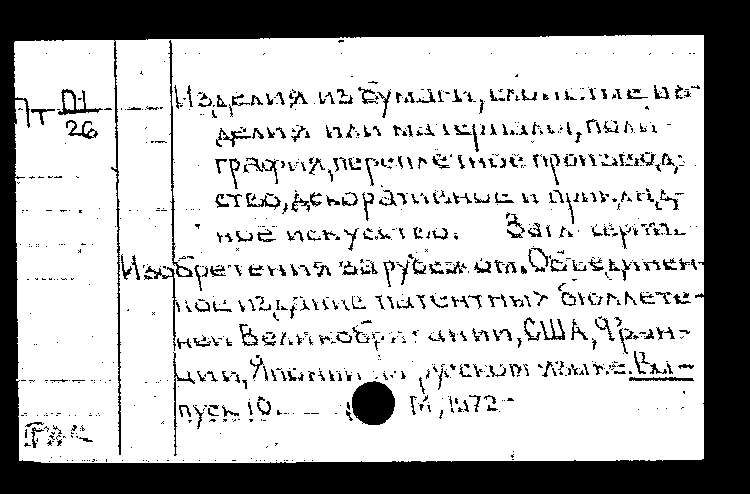 Пт П1/26
Изделия из бумаги, слоистые из-
делия или материалы, поли-
графия, переплетное производ-
ство, декоративное и приклад-
ное искусство. Загл. серии.
Изобретения за рубежом. Объединен-
ное издание патентных бюллете-
ней Великобритании, США, Фран-
ции, Японии на русском языке. Вы-
пуск 10. М, 1972-